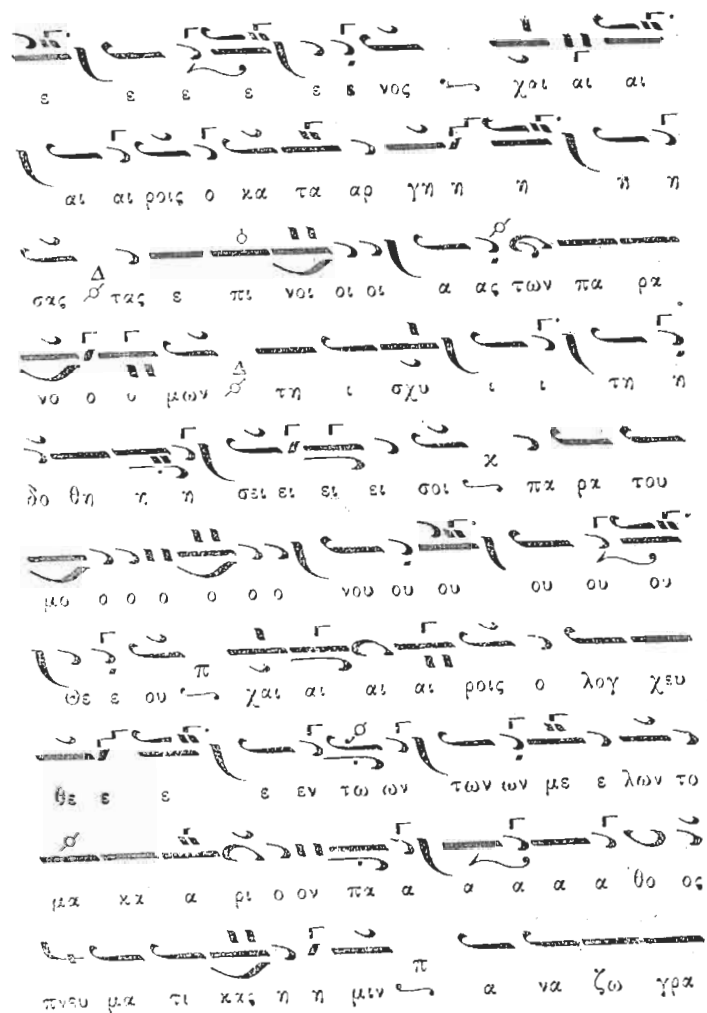 ε ε ε ε ε ε νος χαι αι αι
αι αι ροις ο κα τα αρ γη η η η η
σας Δ τας ε πι νοι οι οι α ας των πα ρα
νο ο υ μων Δ τη ι σχυ ι ι τη η
δο θη η η σει ει ει ει σοι κ πα ρα του
μο ο ο ο ο ο ο νου ου ου ου ου ου
Θε ε ου π χαι αι αι αι ροις ο λογ χευ
θε ε ε ε εν τω ων των ων με ε λων το
μα κα α ρι ο ον πα α α α α α θο ος
πνευ μα τι κας η η μιν π α να ζω γρα